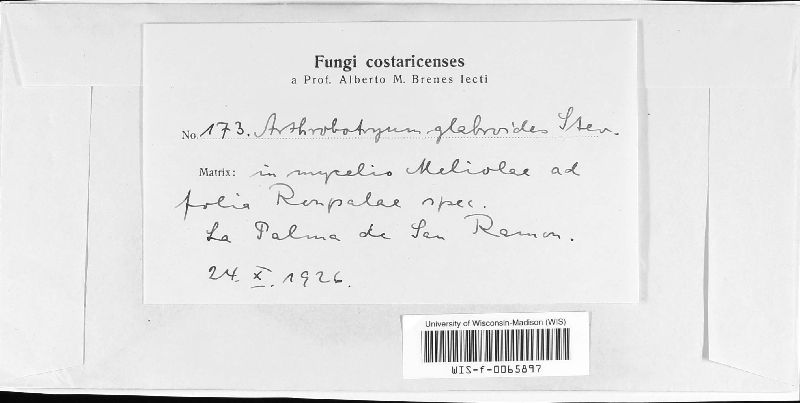 Fungi costaricenses
a Prof. Alberto M. Brenes lecti
No. 173. Arthrobotryum glabroides Stev.
Matrix: in mycelio Meliolae ad
folia Roupalae spec.
La Palma de San Ramon.
24. X. 1926.
University of Wisconsin-Madison (WIS)
WIS-f-0065897